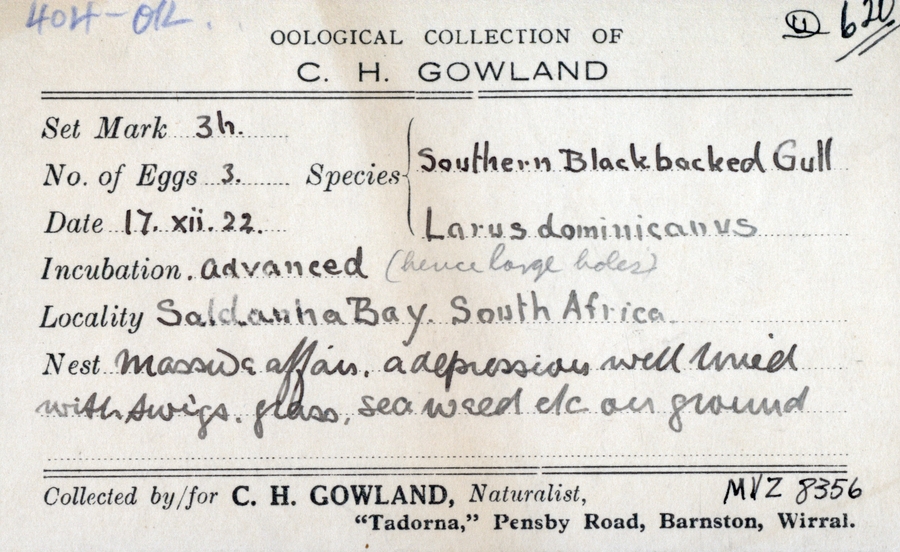 404-OR.
(4) 620
OOLOGICAL COLLECTION OF
C. H. GOWLAND
Set Mark 3h.
No. of Eggs 3. Species Southern Blackbacked Gull
Date 17. xii. 22. Larus dominicanus
Incubation. advanced (hence large holes)
Locality Saldanha Bay. South Africa.
Nest Massive affair, a depression well lined
with twigs. grass, sea weed etc on ground
Collected by/for C. H. GOWLAND, Naturalist, MVZ 8356
"Tadorna," Pensby Road, Barnston, Wirral.